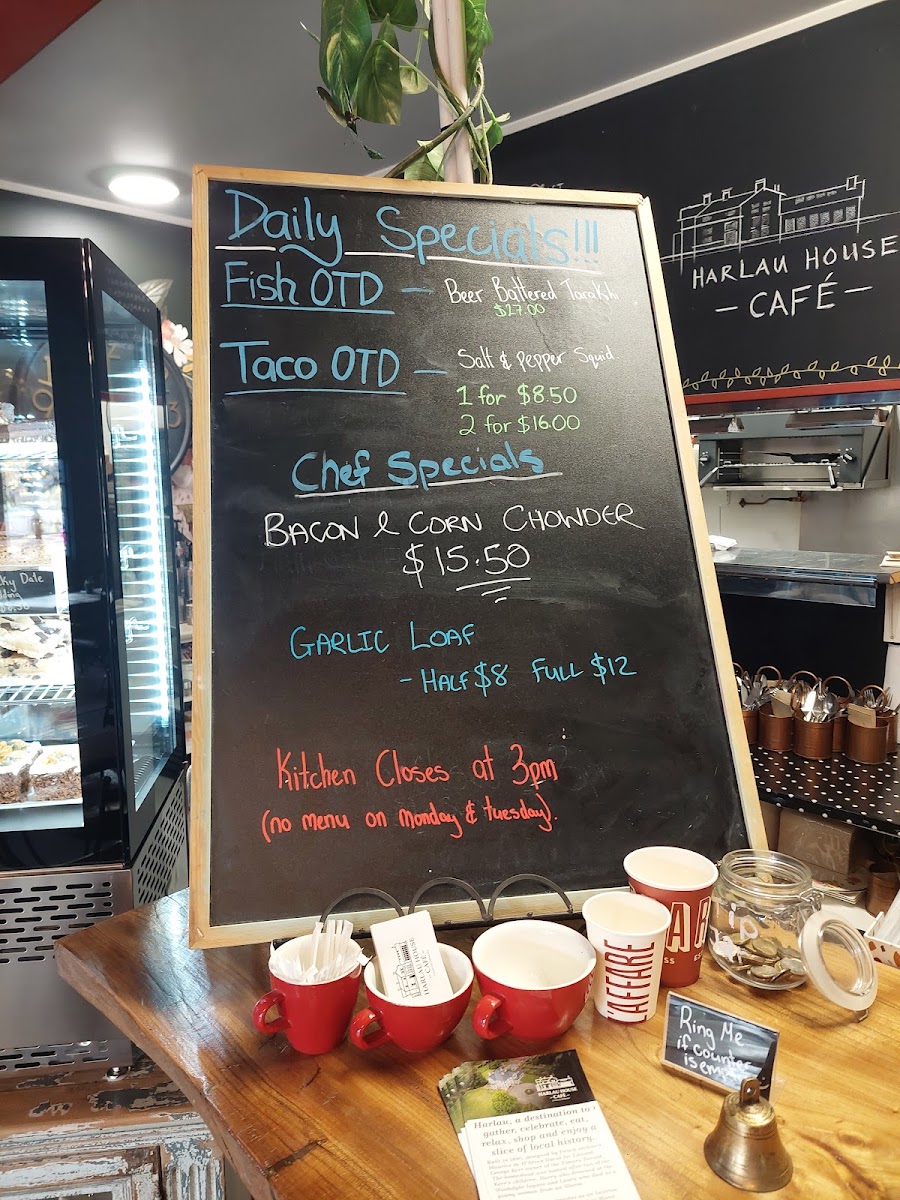 Daily Specials!!!
Fish OTD - Beer Battered Tarakhi
$27.00
Taco OTD - Salt & Pepper Squid
1 for $8.50
2 for $16.00
Chef Specials
BACON & CORN CHOWDER
$15.50
GARLIC LOAF
- HALF $8 FULL $12
Kitchen Closes at 3pm
(no menu on Monday & tuesday).
HARLAU HOUSE
- CAFÉ -
ky Date
HARLAU HOUSE
CAFÉ
L'AFFARE
AR
Ring Me
if counter
is empty
HARLAU HOUSE
CAFÉ
Harlau, a destination to
gather, celebrate, eat,
relax, shop and enjoy a
slice of local history.